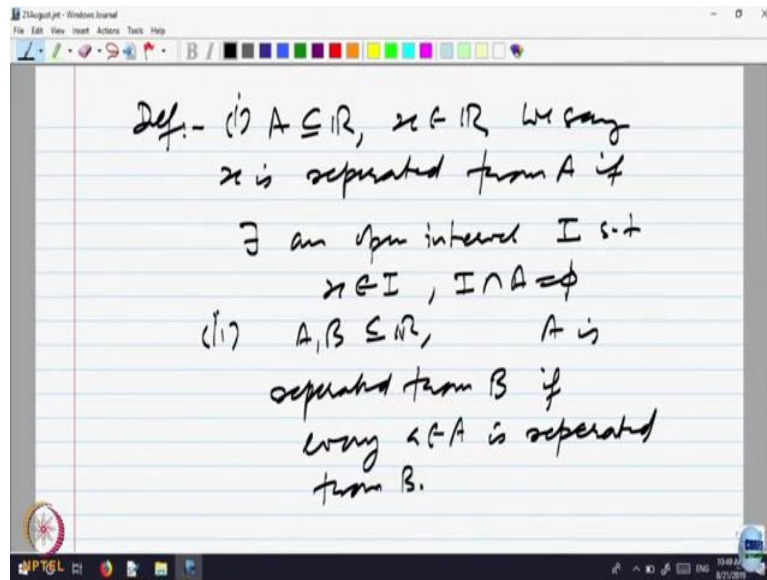 21August.jnt - Windows Journal
File Edit View Insert Actions Tools Help
B I
Def:- (i) A ⊆ ℝ, x ∈ ℝ We say
x is seperated from A if
∃ an open interval I s.t
x ∈ I , I ∩ A = ϕ
(ii) A, B ⊆ ℝ, A is
seperated from B if
every a ∈ A is seperated
from B.
NPTEL
ENG
8/21/2019